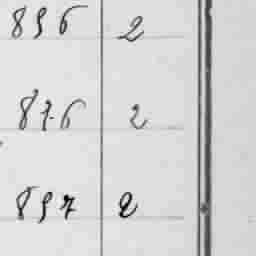 896 2
876 2
897 2